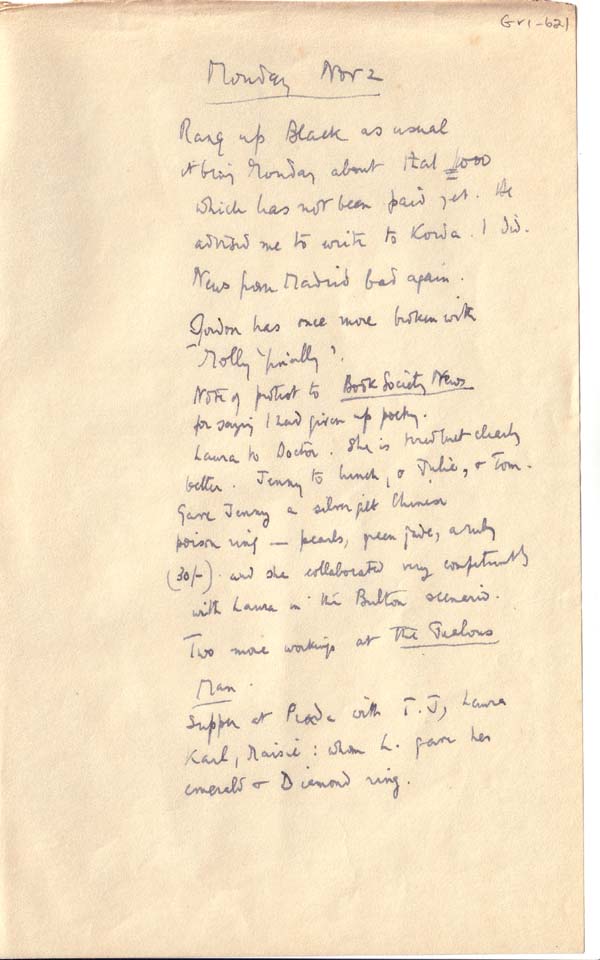 Gr1-621
Monday Nov 2
Rang up Black as usual
it being Monday about that £1000
which has not been paid yet. He
advised me to write to Korda. I did.
News from Madrid bad again.
Gordon has once more broken with
Molly 'finally'.
Note of protest to Book Society News
for saying I had given up poetry.
Laura to Doctor. She is tired but clearly
better. Jenny to lunch, & Julie, & Tom.
Gave Jenny a silver gilt Chinese
poison ring — pearls, green jade, a ruby
(30/-) and she collaborated very competently
with Laura in the Bulton scenario.
Two more workings at The
Man.
Supper at Prada with T.J, Laura
Karl, Maisie: whom L. gave her
emerald & Diamond ring.